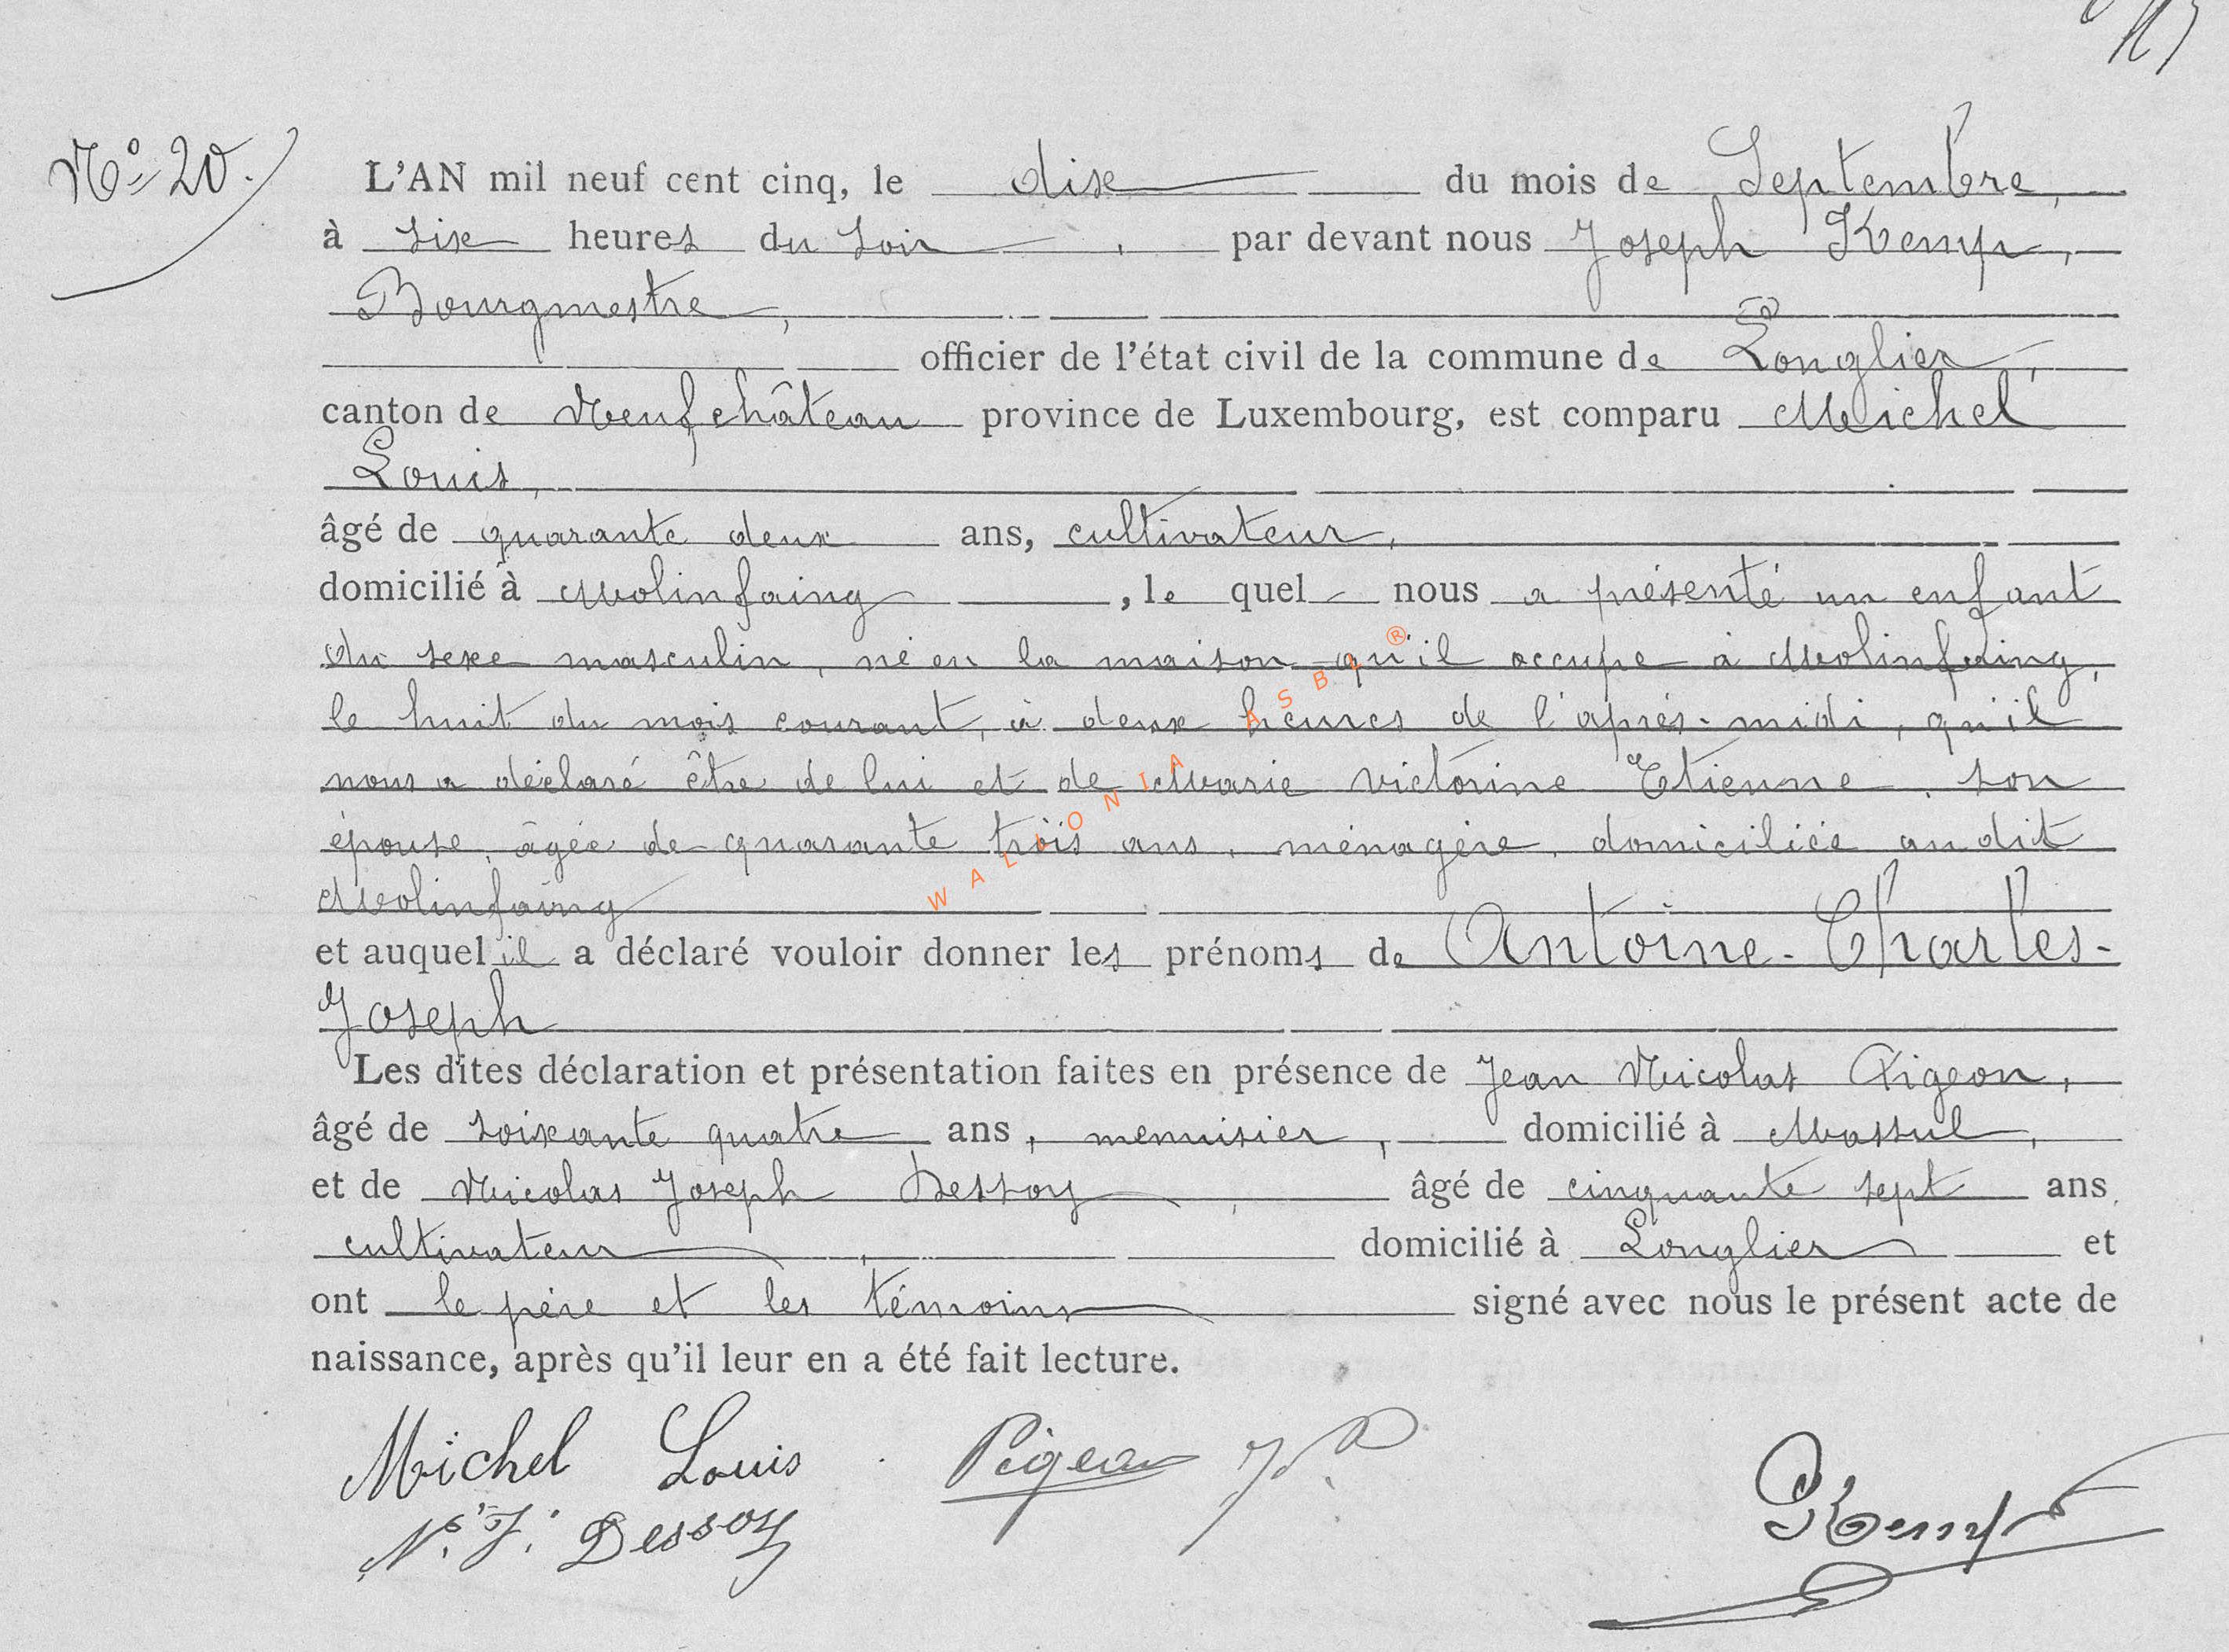 N° 20.
L'AN mil neuf cent cinq, le dix du mois de Septembre,
à six heures du soir, par devant nous Joseph Kemp,
Bourgmestre,
officier de l'état civil de la commune de Longlier,
canton de Neufchâteau province de Luxembourg, est comparu Michel
Louis,
âgé de quarante deux ans, cultivateur,
domicilié à Molinfaing, le quel nous a présenté un enfant
du sexe masculin, né en la maison qu'il occupe à Molinfaing,
le huit du mois courant, à deux heures de l'après-midi, qu'il
nous a déclaré être de lui et de Marie Victorine Etienne, son
épouse, âgée de quarante trois ans, ménagère, domiciliée au dit
Molinfaing
et auquel il a déclaré vouloir donner les prénoms de Antoine-Charles-
Joseph
Les dites déclaration et présentation faites en présence de Jean Nicolas Pigeon,
âgé de soixante quatre ans, menuisier, domicilié à Massul,
et de Nicolas Joseph Dessoy, âgé de cinquante sept ans,
cultivateur, domicilié à Longlier et
ont le père et les témoins signé avec nous le présent acte de
naissance, après qu'il leur en a été fait lecture.
Michel Louis Pigeon
N. J. Dessoy Kemp
WALLONIA ASBL ®